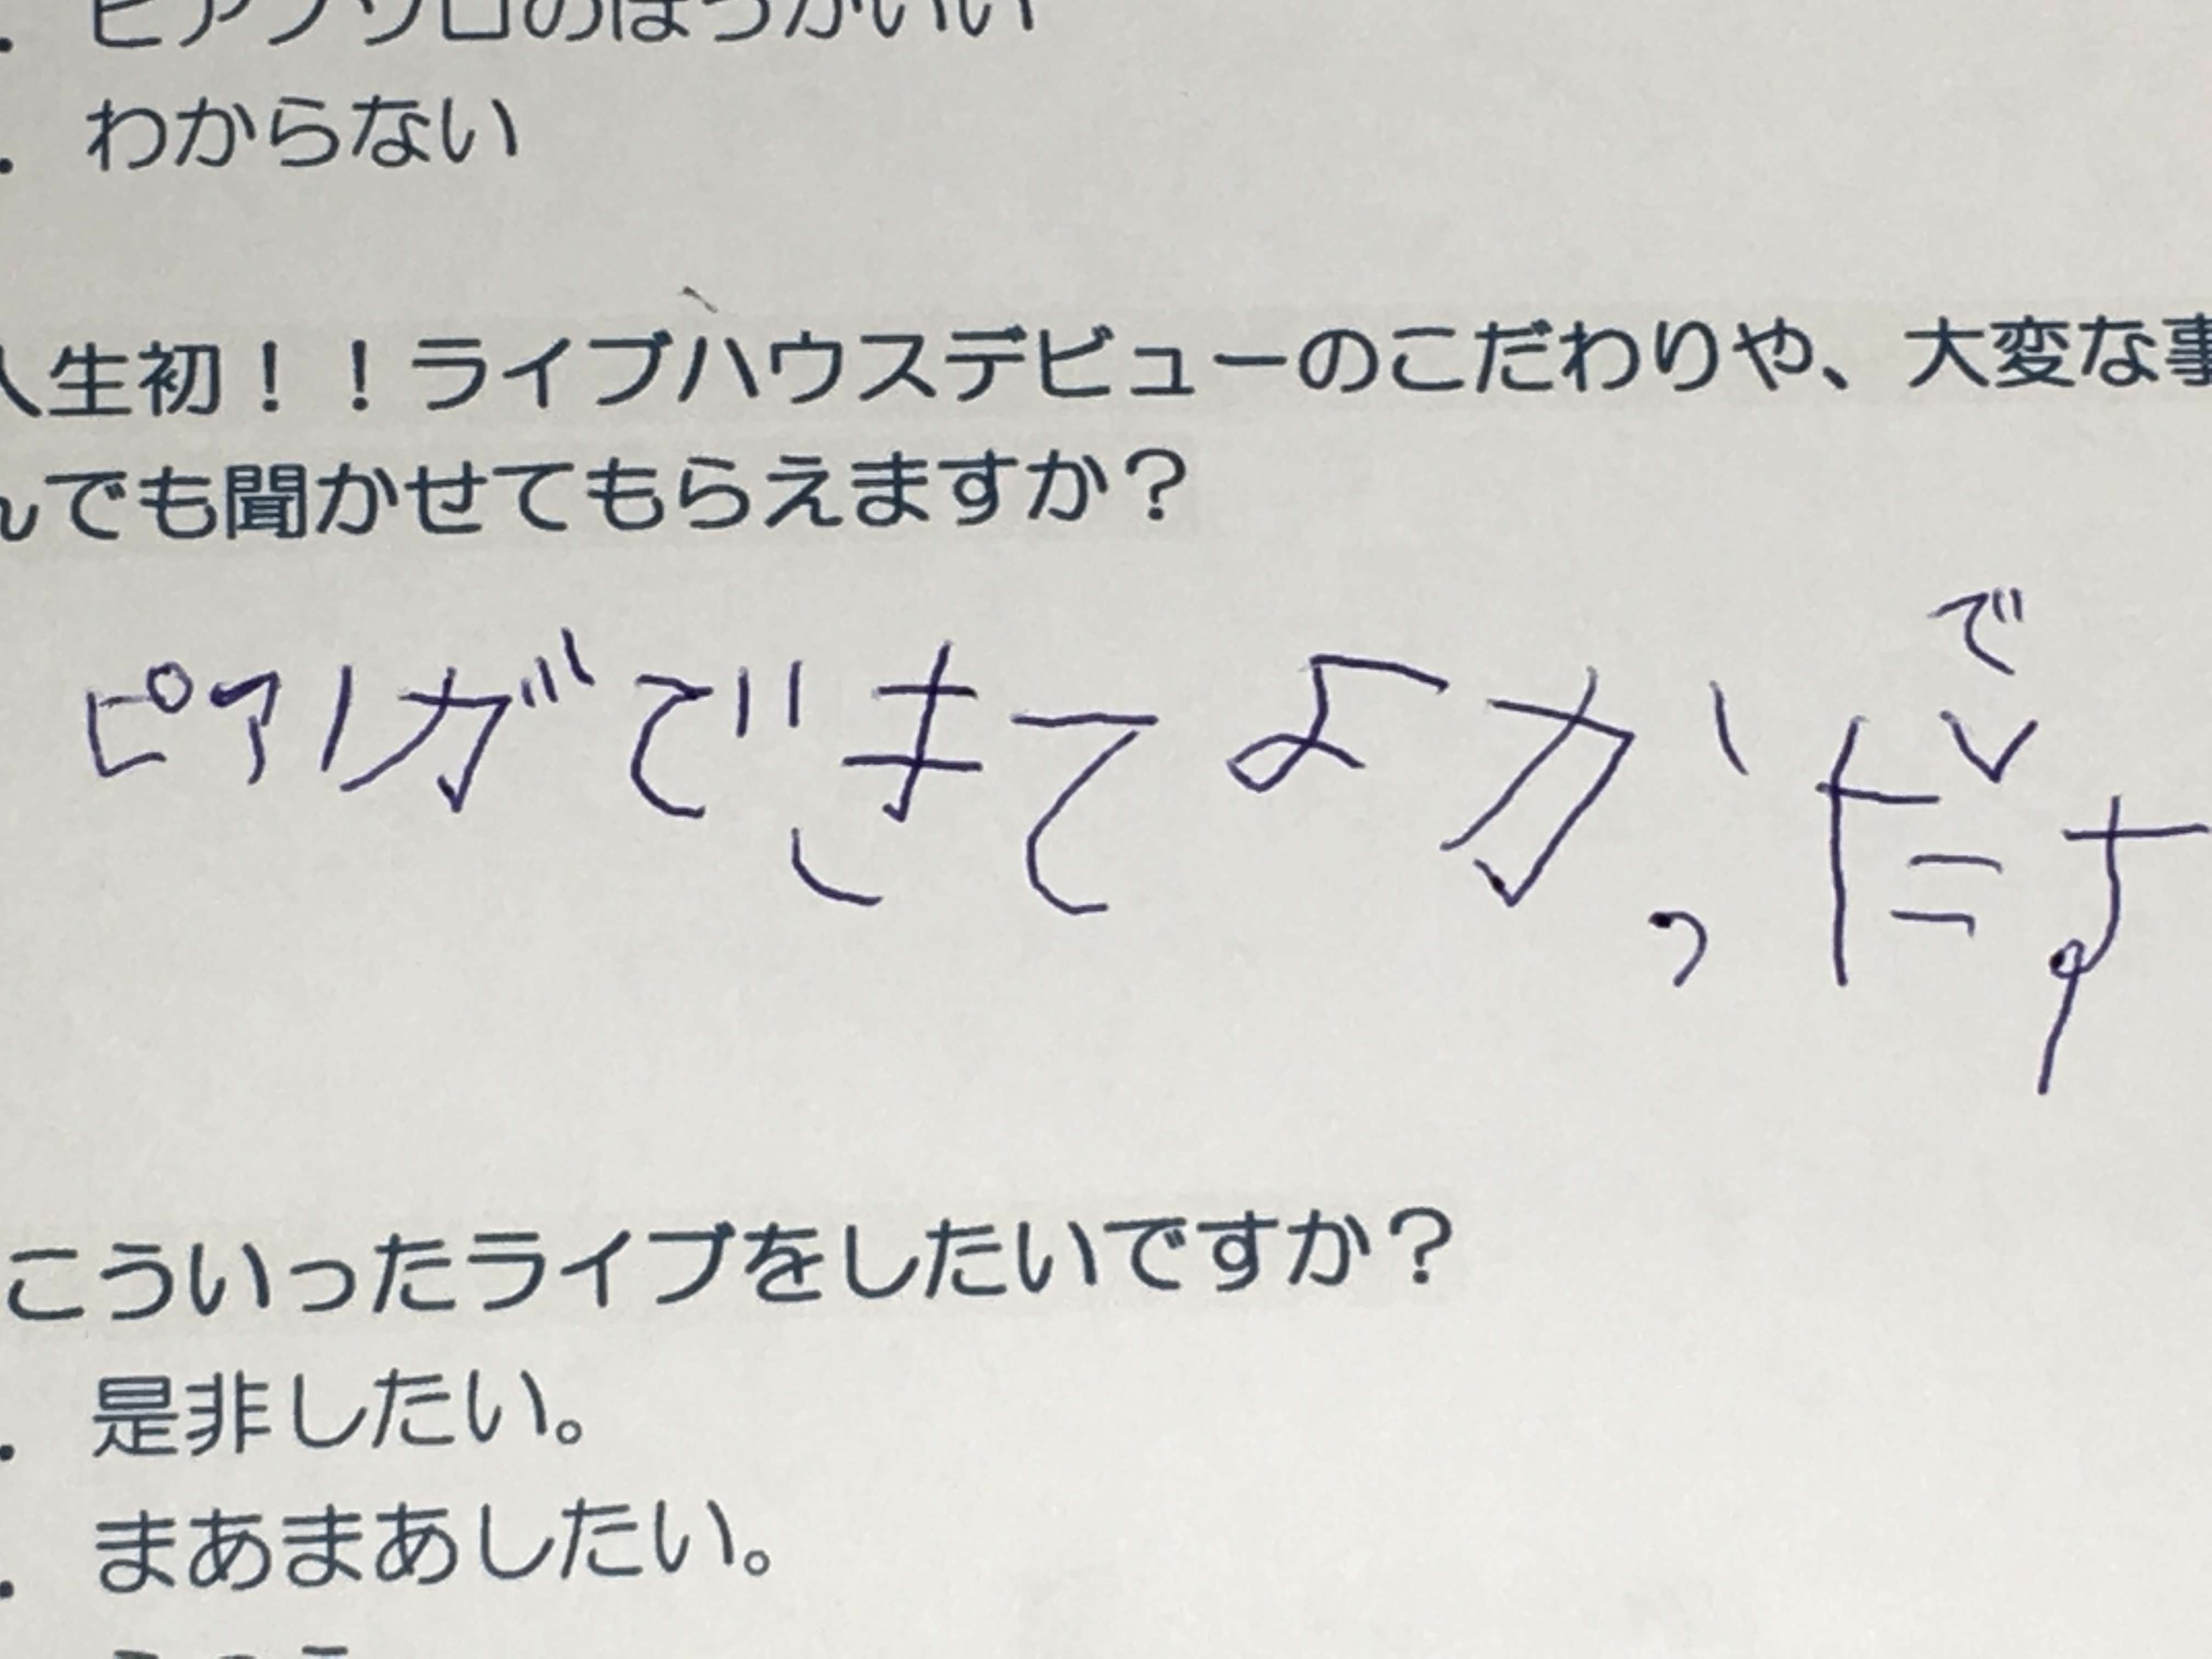 ピアノソロのほうがいい
わからない
人生初！！ライブハウスデビューのこだわりや、大変な事
んでも聞かせてもらえますか？
ピアノができてよかったです
こういったライブをしたいですか？
是非したい。
まあまあしたい。